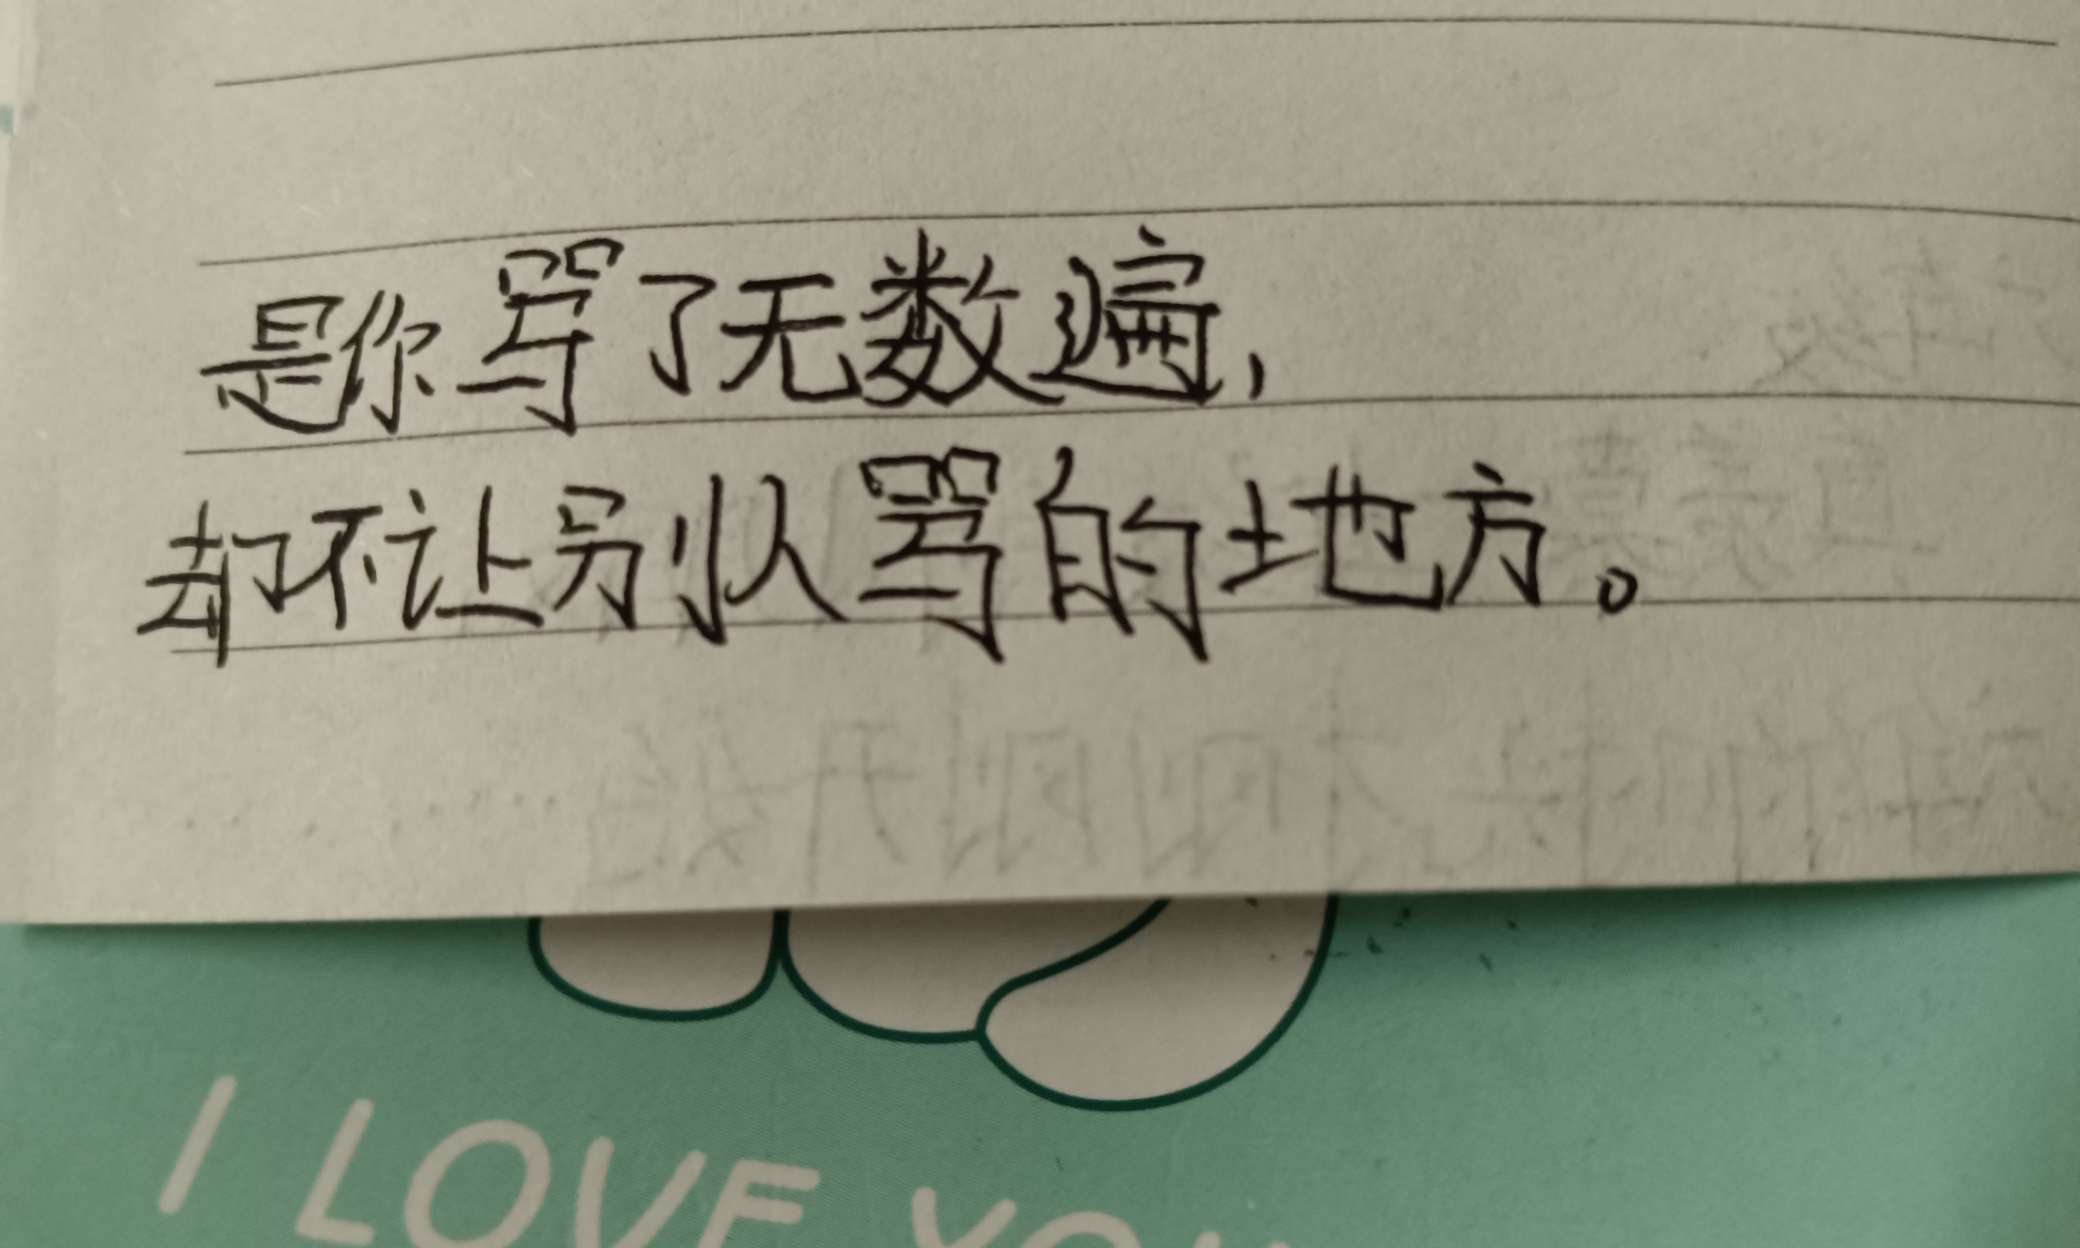 是你骂了无数遍，
却不让别人骂的地方。
I LOVE YOU